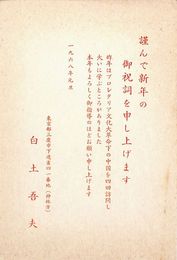 謹んで新年の
御祝詞を申し上げます
昨年はプロレタリア文化大革命下の中国を四回訪問し
大いに学ぶところがありました
本年もよろしく御指導のほどお願い申し上げます
一九六八年元旦
東京都三鷹市下連雀四一番地(仲町方)
白土吾夫